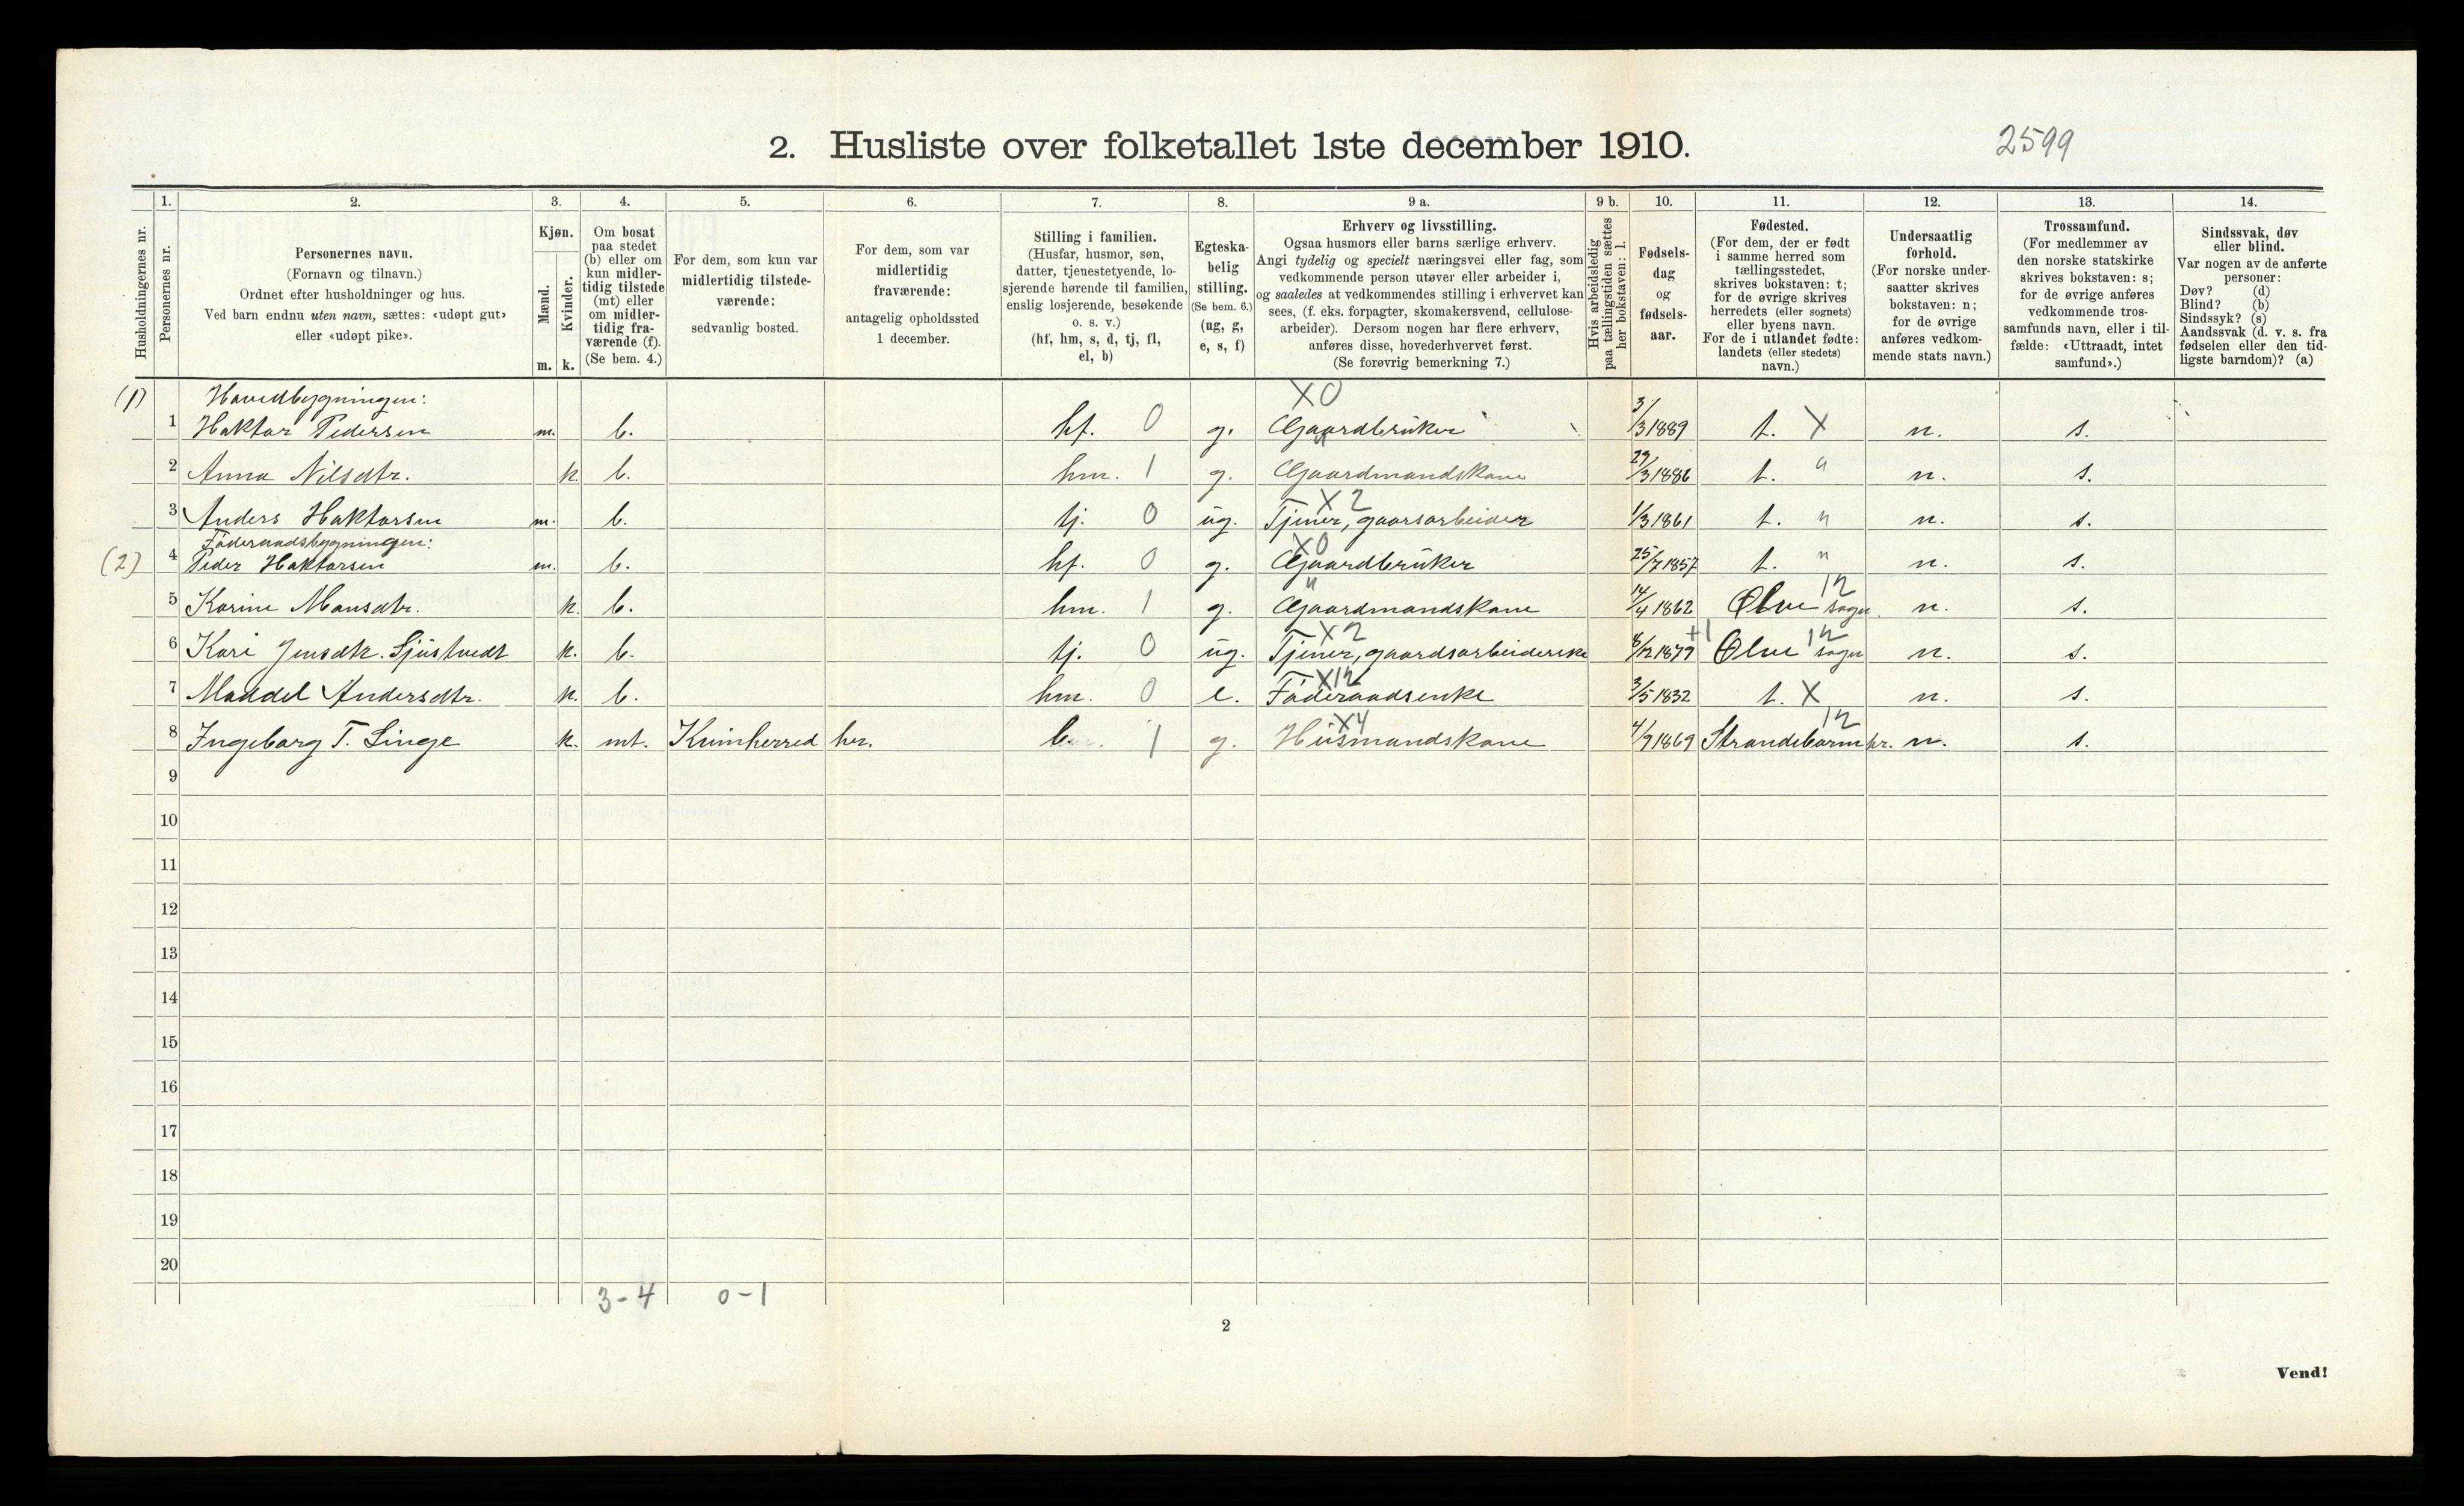 2. Husliste over folketallet 1ste december 1910.
2599
Husholdningernes nr.
1.
Personernes nr.
2.
Personernes navn.
(Fornavn og tilnavn.)
Ordnet efter husholdninger og hus.
Ved barn endnu uten navn, sættes: «udøpt gut»
eller «udøpt pike».
3.
Kjøn.
Mænd.
Kvinder.
m. k.
4.
Om bosat
paa stedet
(b) eller om
kun midler-
tidig tilstede
(mt) eller
om midler-
tidig fra-
værende (f).
(Se bem. 4.)
5.
For dem, som kun var
midlertidig tilstede-
værende:
sedvanlig bosted.
6.
For dem, som var
midlertidig
fraværende:
antagelig opholdssted
1 december.
7.
Stilling i familien.
(Husfar, husmor, søn,
datter, tjenestetyende, lo-
sjerende hørende til familien,
enslig losjerende, besøkende
o. s. v.)
(hf, hm, s, d, tj, fl,
el, b)
8.
Egteska-
belig
stilling.
(Se bem. 6.)
(ug, g,
e, s, f)
9 a.
Erhverv og livsstilling.
Ogsaa husmors eller barns særlige erhverv.
Angi tydelig og specielt næringsvei eller fag, som
vedkommende person utøver eller arbeider i,
og saaledes at vedkommendes stilling i erhvervet kan
sees, (f. eks. forpagter, skomakersvend, cellulose-
arbeider). Dersom nogen har flere erhverv,
anføres disse, hovederhvervet først.
(Se forøvrig bemerkning 7.)
9 b.
Hvis arbeidsledig
paa tællingstiden sættes
her bokstaven: l.
10.
Fødsels-
dag
og
fødsels-
aar.
11.
Fødested.
(For dem, der er født
i samme herred som
tællingsstedet,
skrives bokstaven: t;
for de øvrige skrives
herredets (eller sognets)
eller byens navn.
For de i utlandet fødte:
landets (eller stedets)
navn.)
12.
Undersaatlig
forhold.
(For norske under-
saatter skrives
bokstaven: n;
for de øvrige
anføres vedkom-
mende stats navn.)
13.
Trossamfund.
(For medlemmer av
den norske statskirke
skrives bokstaven: s;
for de øvrige anføres
vedkommende tros-
samfunds navn, eller i til-
fælde: «Uttraadt, intet
samfund».)
14.
Sindssvak, døv
eller blind.
Var nogen av de anførte
personer:
Døv? (d)
Blind? (b)
Sindssyk? (s)
Aandssvak (d. v. s. fra
fødselen eller den tid-
ligste barndom)? (a)
(1) Hovedbygningen: X0
1 Haktor Pedersen m. b. hf. 0 g. Gaardbruker 3/3 1889 t. X n. s.
2 Anna Nilsdtr. k. b. hm. 1 g. " Gaardmandskone 29/3 1886 t. " n. s.
3 Anders Haktorsen m. b. tj. 0 ug. X2 Tjener, gaarsarbeider 1/3 1861 t. " n. s.
Föderaadsbygningen:
(2) 4 Peder Haktorsen m. b. hf. 0 g. X0 Gaardbruker 25/7 1857 t. " n. s.
5 Karine Monsdtr. k. b. hm. 1 g. " Gaardmandskone 14/4 1862 Ølve sogn 12 n. s.
6 Kari Jensdtr. Sjustvedt k. b. tj. 0 ug. X2 Tjener, gaardsarbeiderske 8/12 1879 +1 Ølve sogn 12 n. s.
7 Maddel Andersdtr. k. b. hm. 0 e. X12 Föderaadsenke 3/5 1832 t. X n. s.
8 Ingeborg T. Linge k. mt. Kvinherred her. b. 1 g. X4 Husmandskone 4/9 1869 Strandebarm hr. 12 n. s.
9
10
11
12
13
14
15
16
17
18
19
20
3-4 0-1
2
Vend!